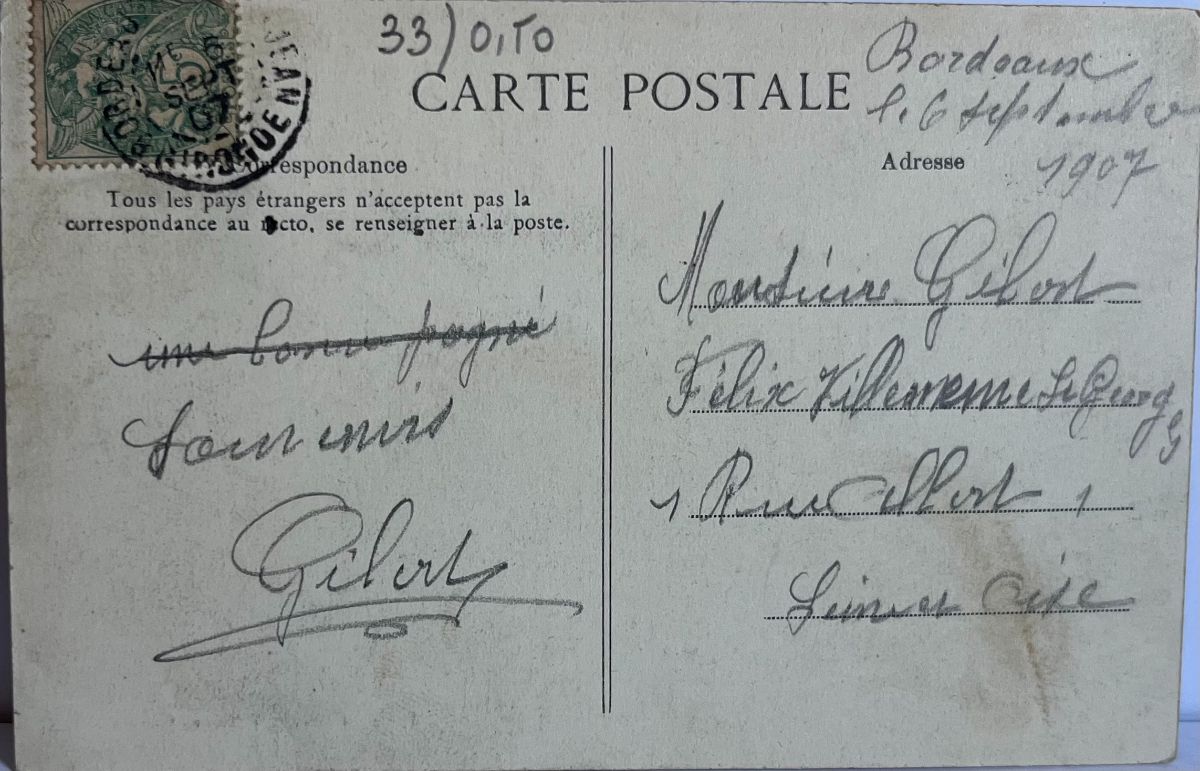 33) 0,50
CARTE POSTALE
Bordeaux
le 6 septembre
1907
BORDEAUX
SEPT
07
GIRONDE
Correspondance
Tous les pays étrangers n'acceptent pas la
correspondance au recto, se renseigner à la poste.
Adresse
une bonne pogné
Souvenirs
Gilbert
Gilbert
Félix Villememe St Georg
1 Rue Albert 1
Seine et Oise